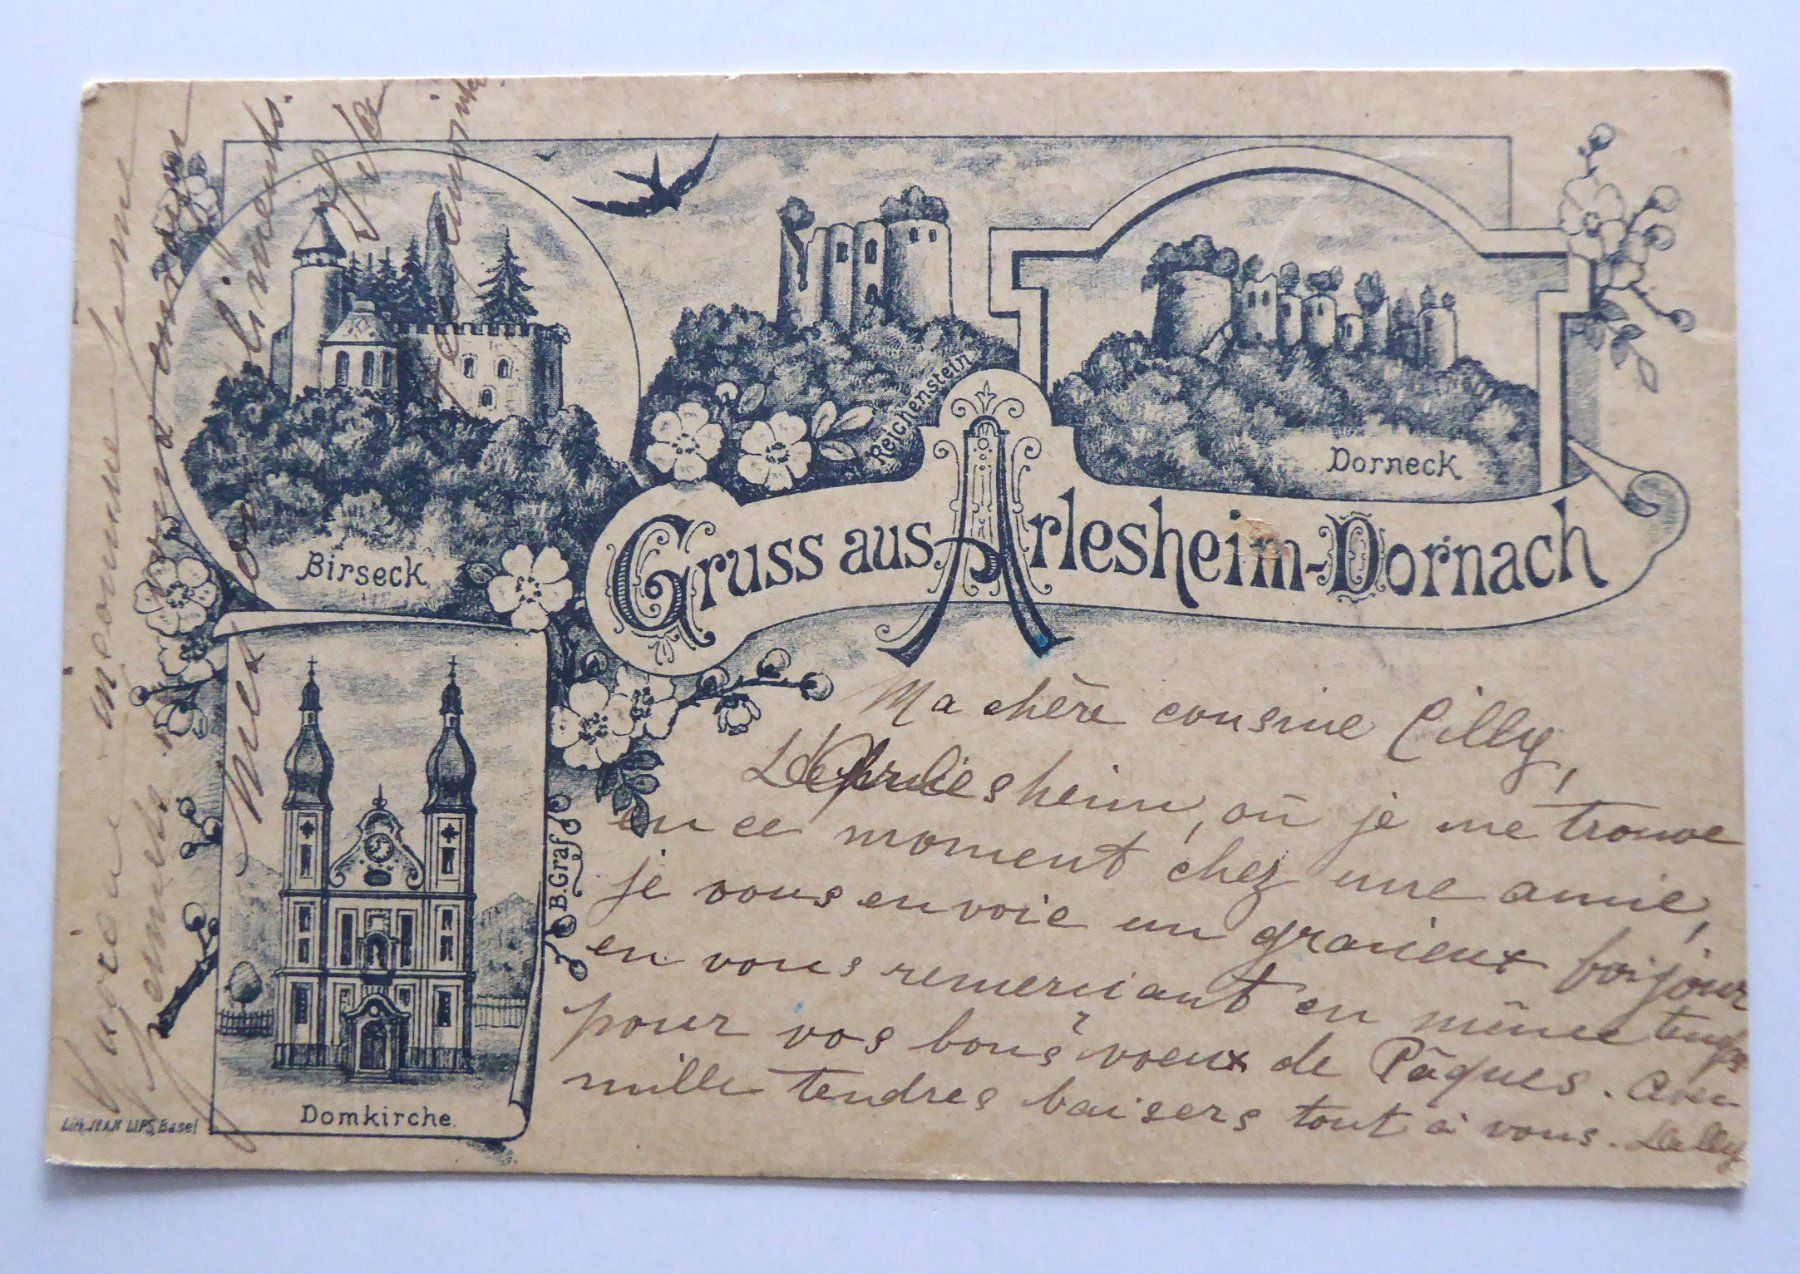 Birseck
Reichenstein
Dorneck
Gruss aus Arlesheim-Dornach
Domkirche.
B. Graf
Lith. JEAN LIPS, Basel
Ma chère cousine Cilly,
D'Arlesheim, où je me trouve
en ce moment chez une amie,
je vous envoie un gracieux bonjour
en vous remerciant en même temps
pour vos bons voeux de Pâques. Avec
mille tendres baisers tout à vous. Lilly
inconnue
Mes compliments.